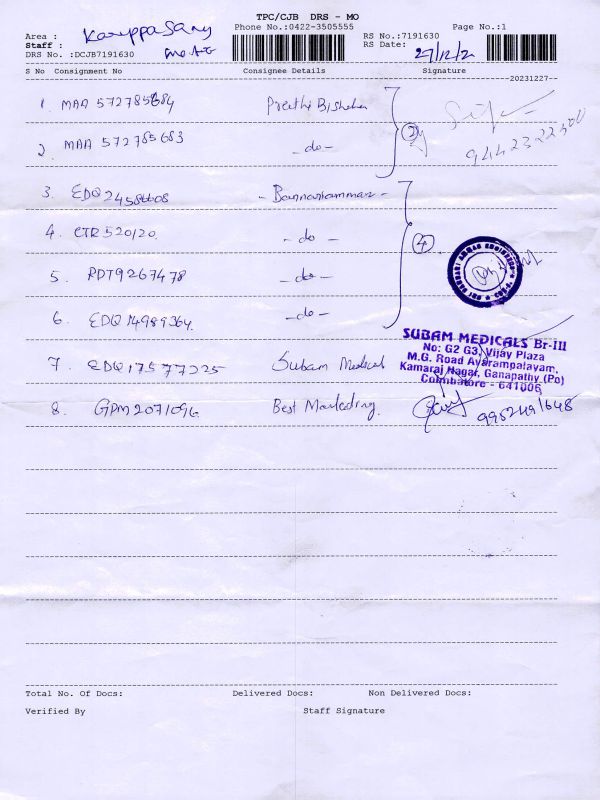 TPC/CJB DRS - MO
Area : Karuppasamy Phone No.:0422-3505555 Page No.:1
Staff : RS No.:7191630
DRS No. :DCJB7191630 RS Date: 27/12/2
S No Consignment No Consignee Details Signature
20231227
1. MAA 572785684 Preethi
2. MAA 572785683 - do - 2
3. EDQ 24586608 - Bannariamman -
4. CTR 520120 - do - 4
5. PDT9267478 - do -
6. EDQ 14989364 - do -
SUBAM MEDICALS Br-III
No: G2 G3, Vijay Plaza
M.G. Road Avarampalayam,
Kamaraj Nagar, Ganapathy (Po)
Coimbatore - 641006
7. EDQ17577225 Subam Medical
8. GPM 2071096 Best Marketing
9952491648
Total No. Of Docs: Delivered Docs: Non Delivered Docs:
Verified By Staff Signature